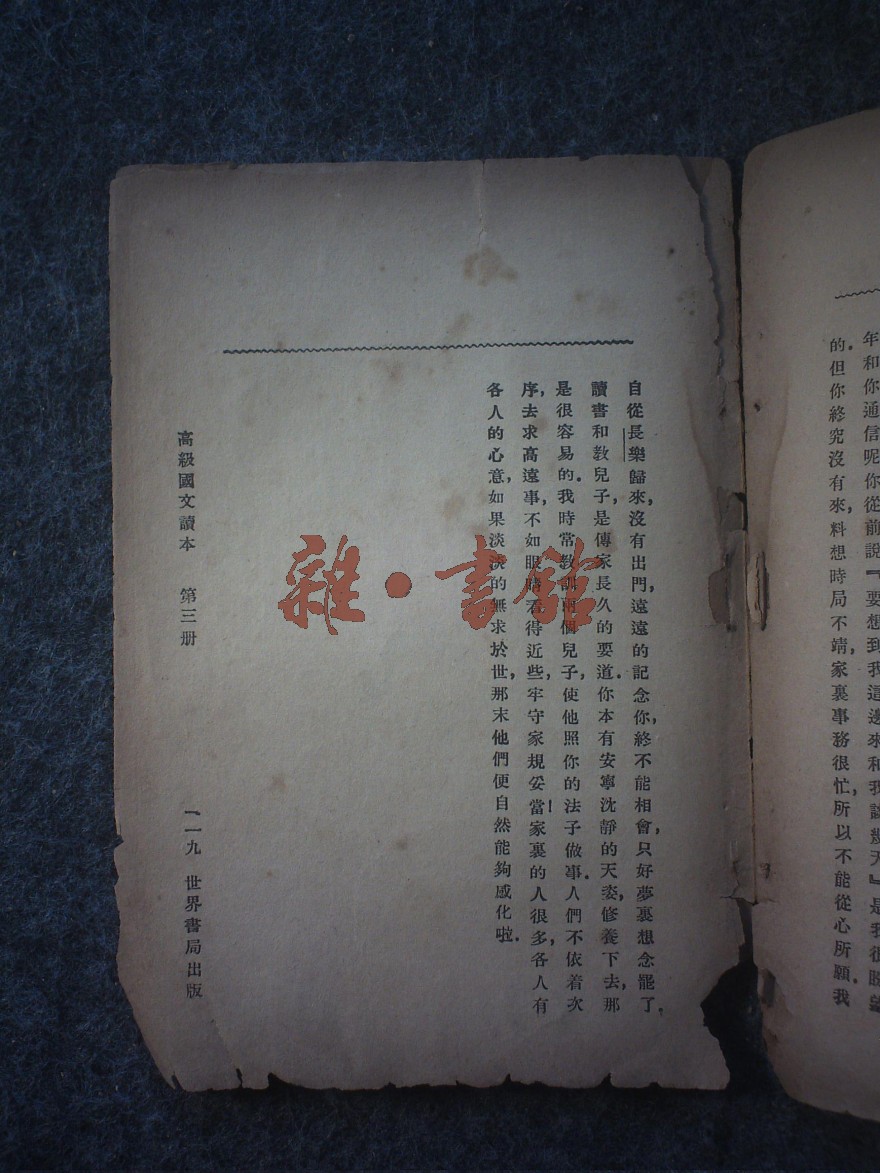 年和你通信呢你從前說『要想到我這邊來和我談幾天』是我很盼望
的.但你終究沒有來,料想時局不靖,家裏事務很忙,所以不能從心所願.我
自從長樂歸來,沒有出門,遠遠的記念你,終不能相會,只好夢裏想念罷了.
讀書和教兒子,是傳家長久的要道.你本有安寧沈靜的天姿,修養下去,那
是很容易的.我時常教訓兩個兒子,使他照你的法子做事.人們不依着次
序,去求高遠事,不如眼睛看得近些,牢守家規妥當!家裏的人很多,各人有
各人的心意,如果淡淡的無求於世,那末他們便自然能夠感化啦.
高級國文讀本 第三册 一一九 世界書局出版
雜·書館